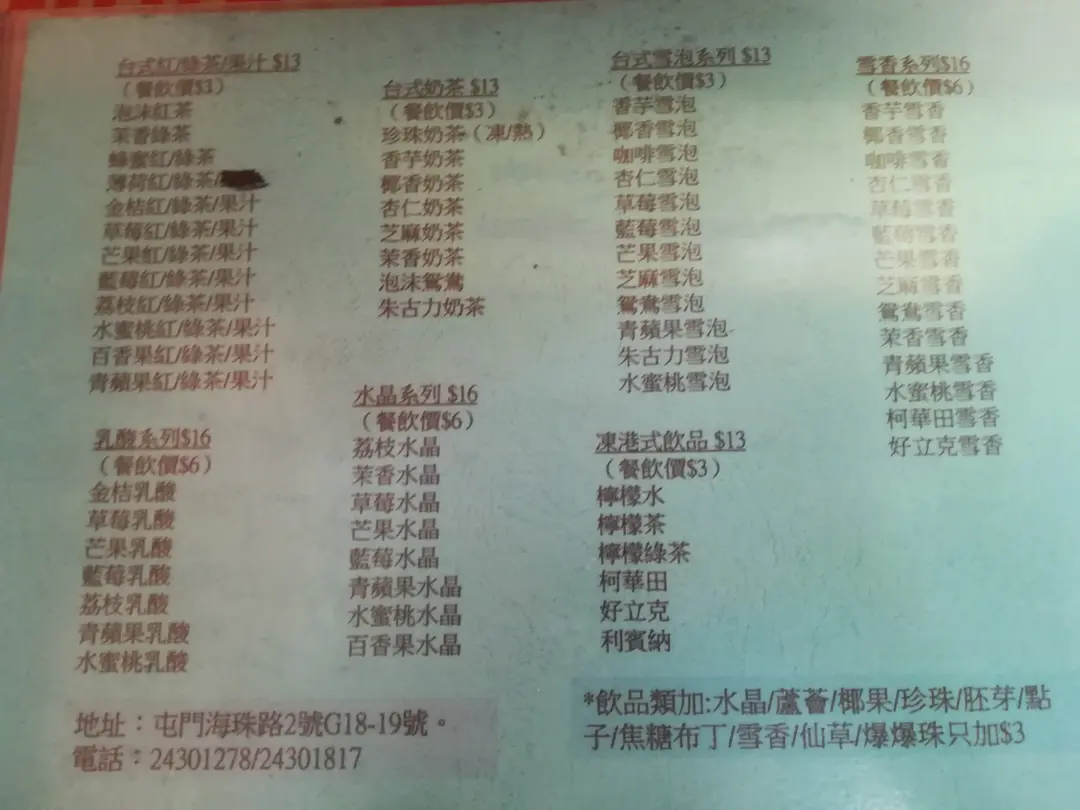 台式紅/綠茶/果汁 $13
（餐飲價$3）
泡沫紅茶
茉香綠茶
蜂蜜紅/綠茶
薄荷紅/綠茶/
金桔紅/綠茶/果汁
草莓紅/綠茶/果汁
芒果紅/綠茶/果汁
藍莓紅/綠茶/果汁
荔枝紅/綠茶/果汁
水蜜桃紅/綠茶/果汁
百香果紅/綠茶/果汁
青蘋果紅/綠茶/果汁
乳酸系列$16
（餐飲價$6）
金桔乳酸
草莓乳酸
芒果乳酸
藍莓乳酸
荔枝乳酸
青蘋果乳酸
水蜜桃乳酸
台式奶茶 $13
（餐飲價$3）
珍珠奶茶（凍/熱）
香芋奶茶
椰香奶茶
杏仁奶茶
芝麻奶茶
茉香奶茶
泡沫鴛鴦
朱古力奶茶
水晶系列 $16
（餐飲價$6）
荔枝水晶
茉香水晶
草莓水晶
芒果水晶
藍莓水晶
青蘋果水晶
水蜜桃水晶
百香果水晶
台式雪泡系列 $13
（餐飲價$3）
香芋雪泡
椰香雪泡
咖啡雪泡
杏仁雪泡
草莓雪泡
藍莓雪泡
芒果雪泡
芝麻雪泡
鴛鴦雪泡
青蘋果雪泡
朱古力雪泡
水蜜桃雪泡
凍港式飲品 $13
（餐飲價$3）
檸檬水
檸檬茶
檸檬綠茶
柯華田
好立克
利賓納
雪香系列$16
（餐飲價$6）
香芋雪香
椰香雪香
咖啡雪香
杏仁雪香
草莓雪香
藍莓雪香
芒果雪香
芝麻雪香
鴛鴦雪香
茉香雪香
青蘋果雪香
水蜜桃雪香
柯華田雪香
好立克雪香
地址：屯門海珠路2號G18-19號。
電話：24301278/24301817
*飲品類加:水晶/蘆薈/椰果/珍珠/胚芽/點
子/焦糖布丁/雪香/仙草/爆爆珠只加$3